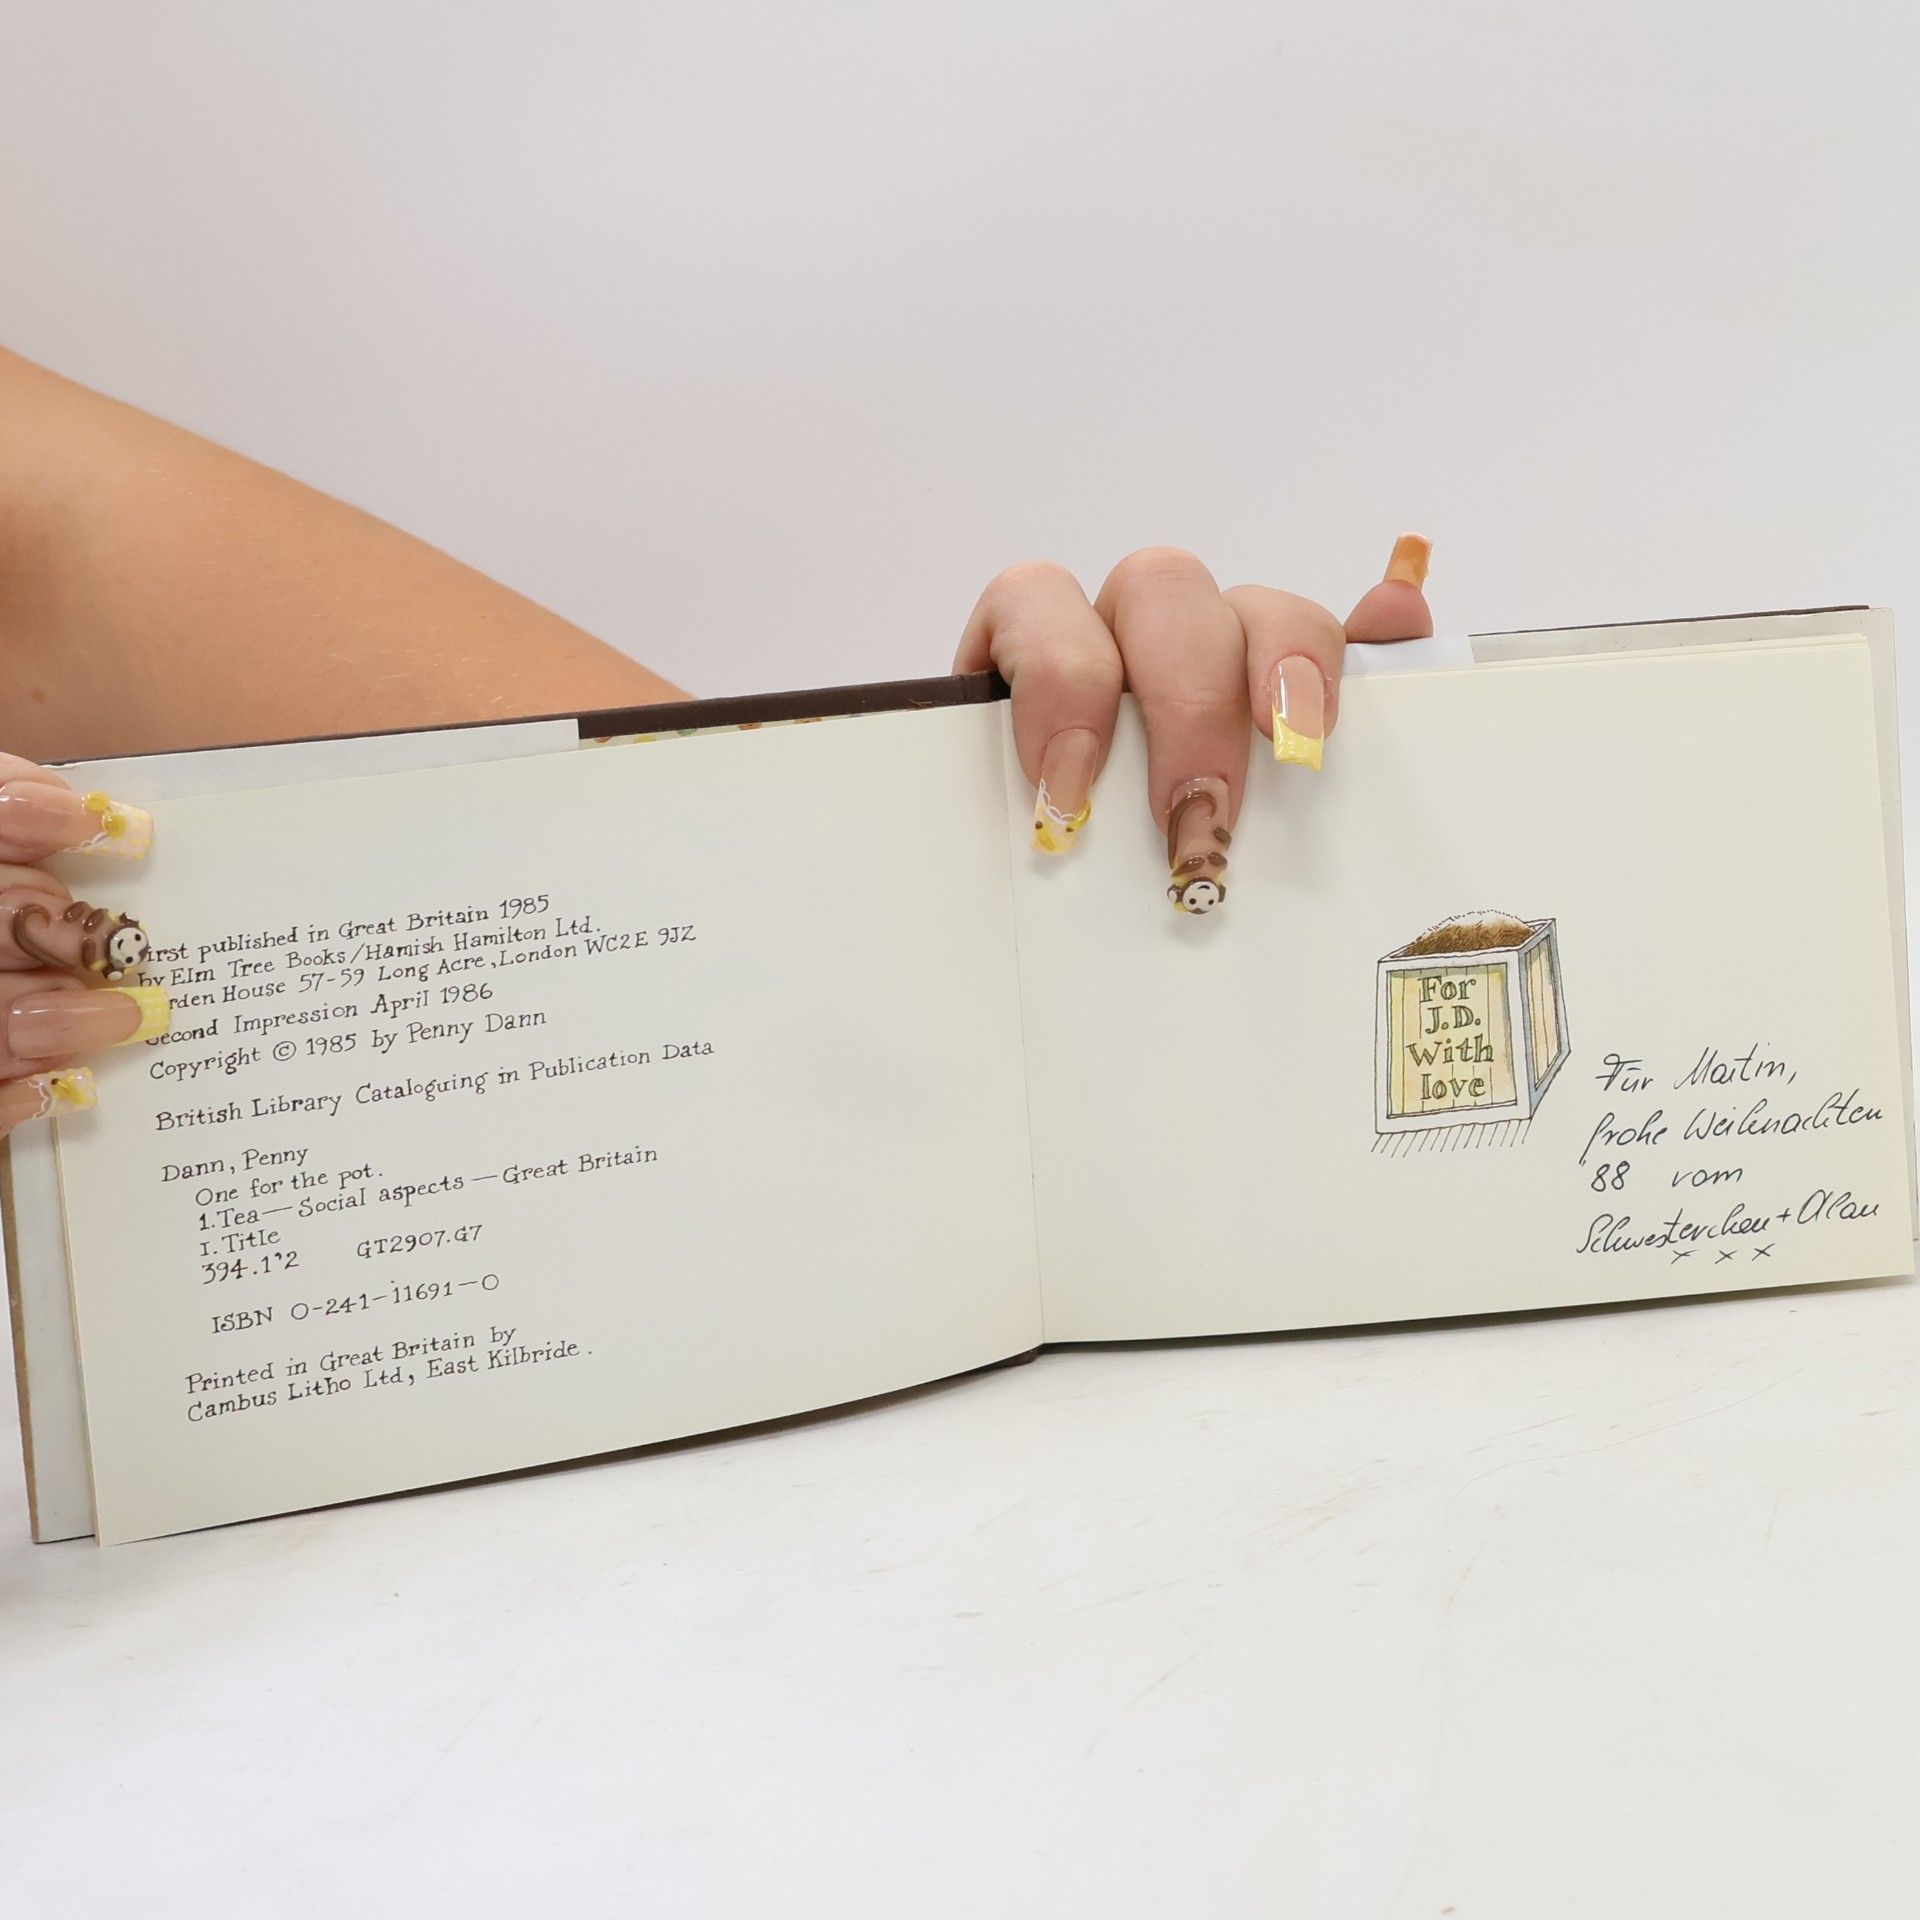 First published in Great Britain 1985
by Elm Tree Books/Hamish Hamilton Ltd.
Garden House 57-59 Long Acre, London WC2E 9JZ
Second Impression April 1986
Copyright © 1985 by Penny Dann
British Library Cataloguing in Publication Data
Dann, Penny
One for the pot.
1. Tea — Social aspects — Great Britain
I. Title
394.1'2 GT2907.G7
ISBN 0-241-11691-0
Printed in Great Britain by
Cambus Litho Ltd, East Kilbride.
For
J.D.
With
love
Für Martin,
frohe Weihnachten
'88 vom
Schwesterchen + Alan
x x x